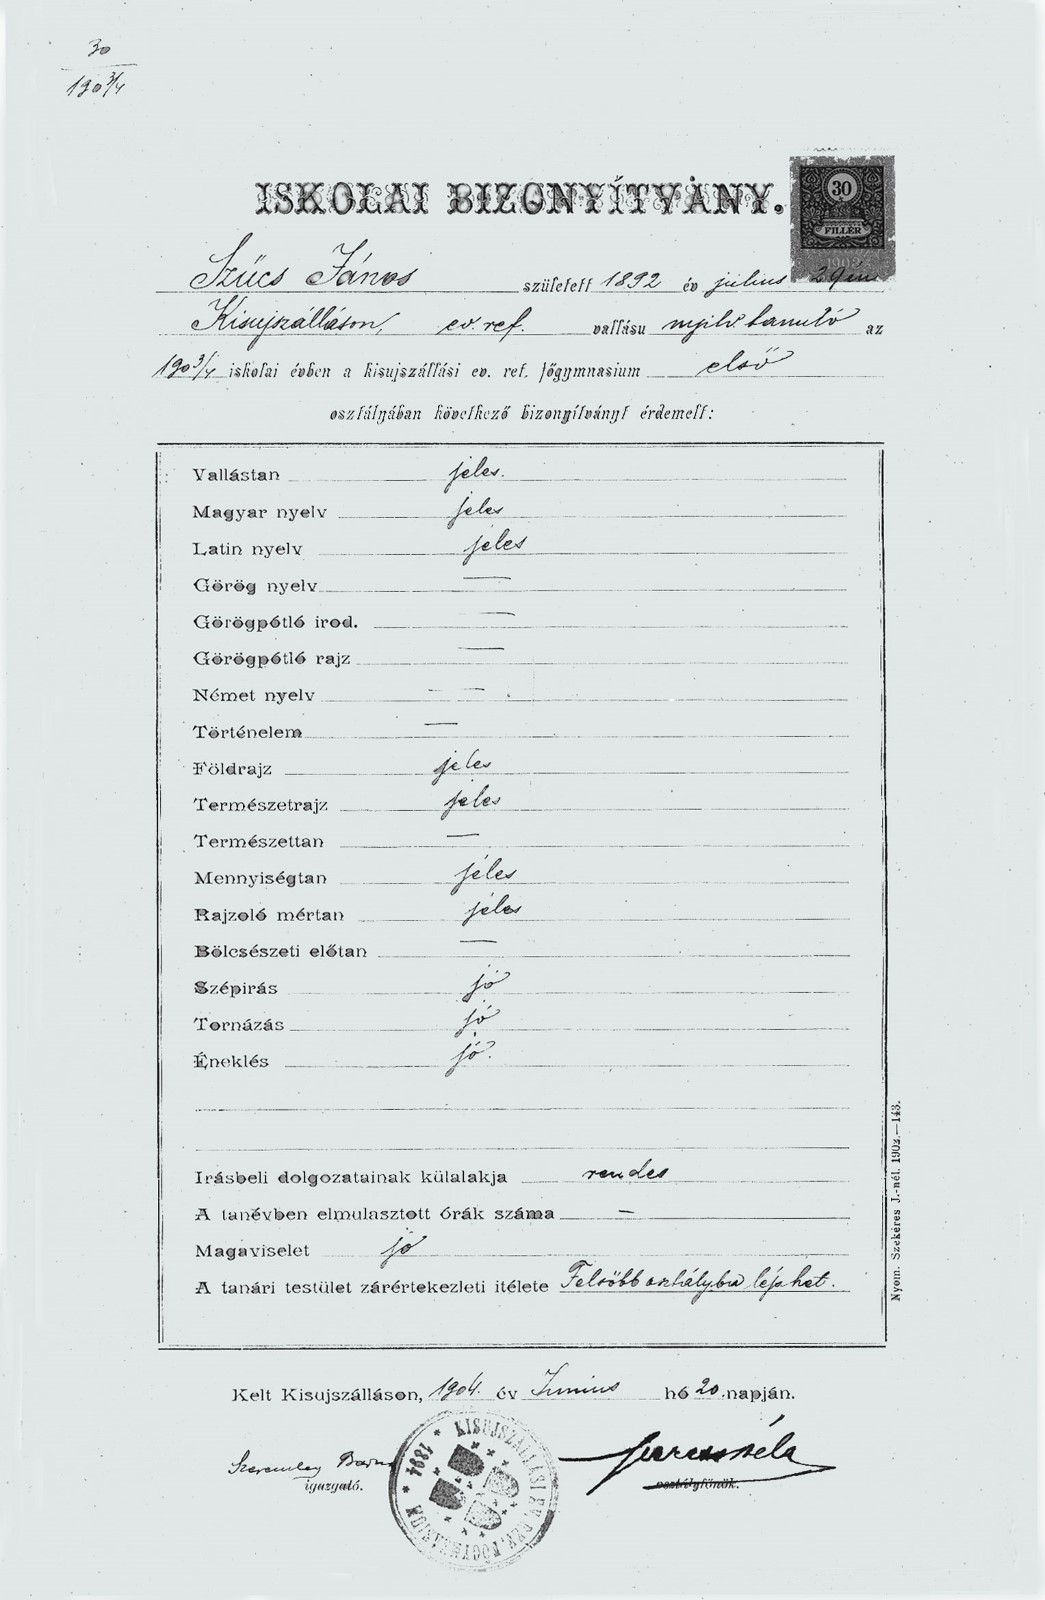 30
1903/4
ISKOLAI BIZONYÍTVÁNY.
30
FILLÉR
Szücs János született 1892 év július 29én
Kisujszálláson, ev. ref. vallásu nyilv. tanuló az
1903/4 iskolai évben a kisujszállási ev. ref. főgymnasium első
osztályában következő bizonyítványt érdemelt:
Vallástan jeles.
Magyar nyelv jeles
Latin nyelv jeles
Görög nyelv —
Görögpótló irod. —
Görögpótló rajz —
Német nyelv — —
Történelem —
Földrajz jeles
Természetrajz jeles
Természettan —
Mennyiségtan jeles
Rajzoló mértan jeles
Bölcsészeti előtan —
Szépirás jó
Tornázás jó
Éneklés jó.
Irásbeli dolgozatainak külalakja rendes
A tanévben elmulasztott órák száma —
Magaviselet jó
A tanári testület zárértekezleti itélete Felsőbb osztályba léphet.
Nyom. Szekéres J.-nél. 1902.—143.
Kelt Kisujszálláson, 1904. év Junius hó 20. napján.
igazgató.
osztályfőnök.
KISUJSZÁLLÁSI EV. REF. FŐGYMNASIUM * 1894 *